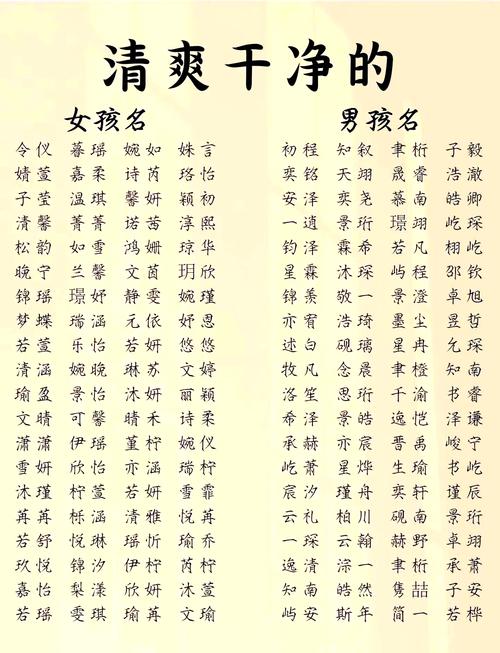 清爽干净的
女孩名 男孩名
令仪 暮瑶 婉如 姝言 初程 知叙 聿桁 子毅
婧萱 嘉柔 诗芮 珞怡 奕铭 天翊 晟睿 浩澈
子莹 温琪 馨妍 颖初 安泽 奕尧 慕南 皓卿
清馨 菁菁 诺茜 淳熙 一逍 景珩 璟翊 屹琛
松韵 如雪 鸿姗 琼华 钧泽 霖希 若凡 栩屹
晚宁 兰馨 文茵 玥欣 星霖 沐琛 屿程 邵钦
锦瑶 璟妤 静雯 婉瑾 锦羡 敬一 景澄 卓旭
梦蝶 瑞涵 元依 妤思 亦宥 浩琦 墨尘 昱哲
若萱 乐怡 若妍 悠悠 述白 砚璃 星舟 允琛
清涵 婉晚 琳苏 文婷 牧凡 念晨 聿橙 知南
瑜盈 景怡 沐妍 丽颖 洛笙 思珩 千渝 书睿
文晴 可馨 晴禾 诗柔 希泽 景皓 逸恺 泽谦
潇潇 伊瑶 堇柠 婉仪 承赫 亦宸 晋禹 峻宁
雪妍 欣怡 亦涵 瑞柠 屹萧 星烨 生瑜 书屹
沐瑾 柠萱 若妍 雪霏 宸汐 瑾舟 奕轩 谨辰
苒苒 栎涵 清雅 悦苒 云礼 柏川 砚南 景珩
若舒 悦琳 瑶忻 瑜乔 一琛 云翰 赫野 卓翊
玖悦 锦汐 伊柠 芮柠 逸清 淙一 聿桁 承萧
嘉怡 梨漾 欣妍 沐萱 知南 皓然 隽喆 子安
若瑶 雯琪 瑜苒 文瑜 屿安 斯年 简一 若桦